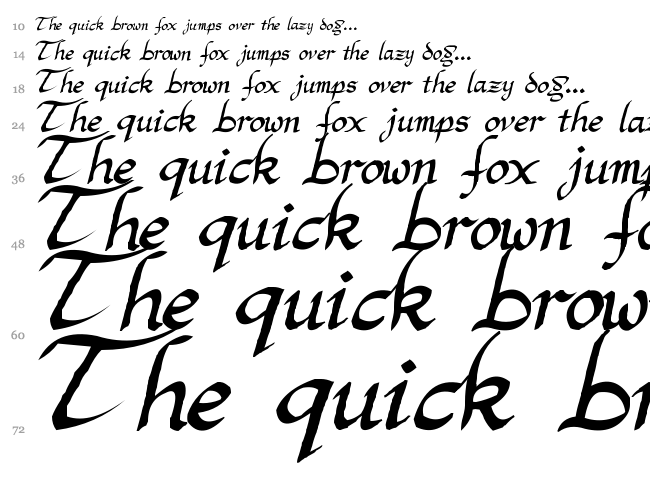 10 The quick brown fox jumps over the lazy dog...
14 The quick brown fox jumps over the lazy dog...
18 The quick brown fox jumps over the lazy dog...
24 The quick brown fox jumps over the la
36 The quick brown fox jum
48 The quick brown fo
60 The quick brow
72 The quick br